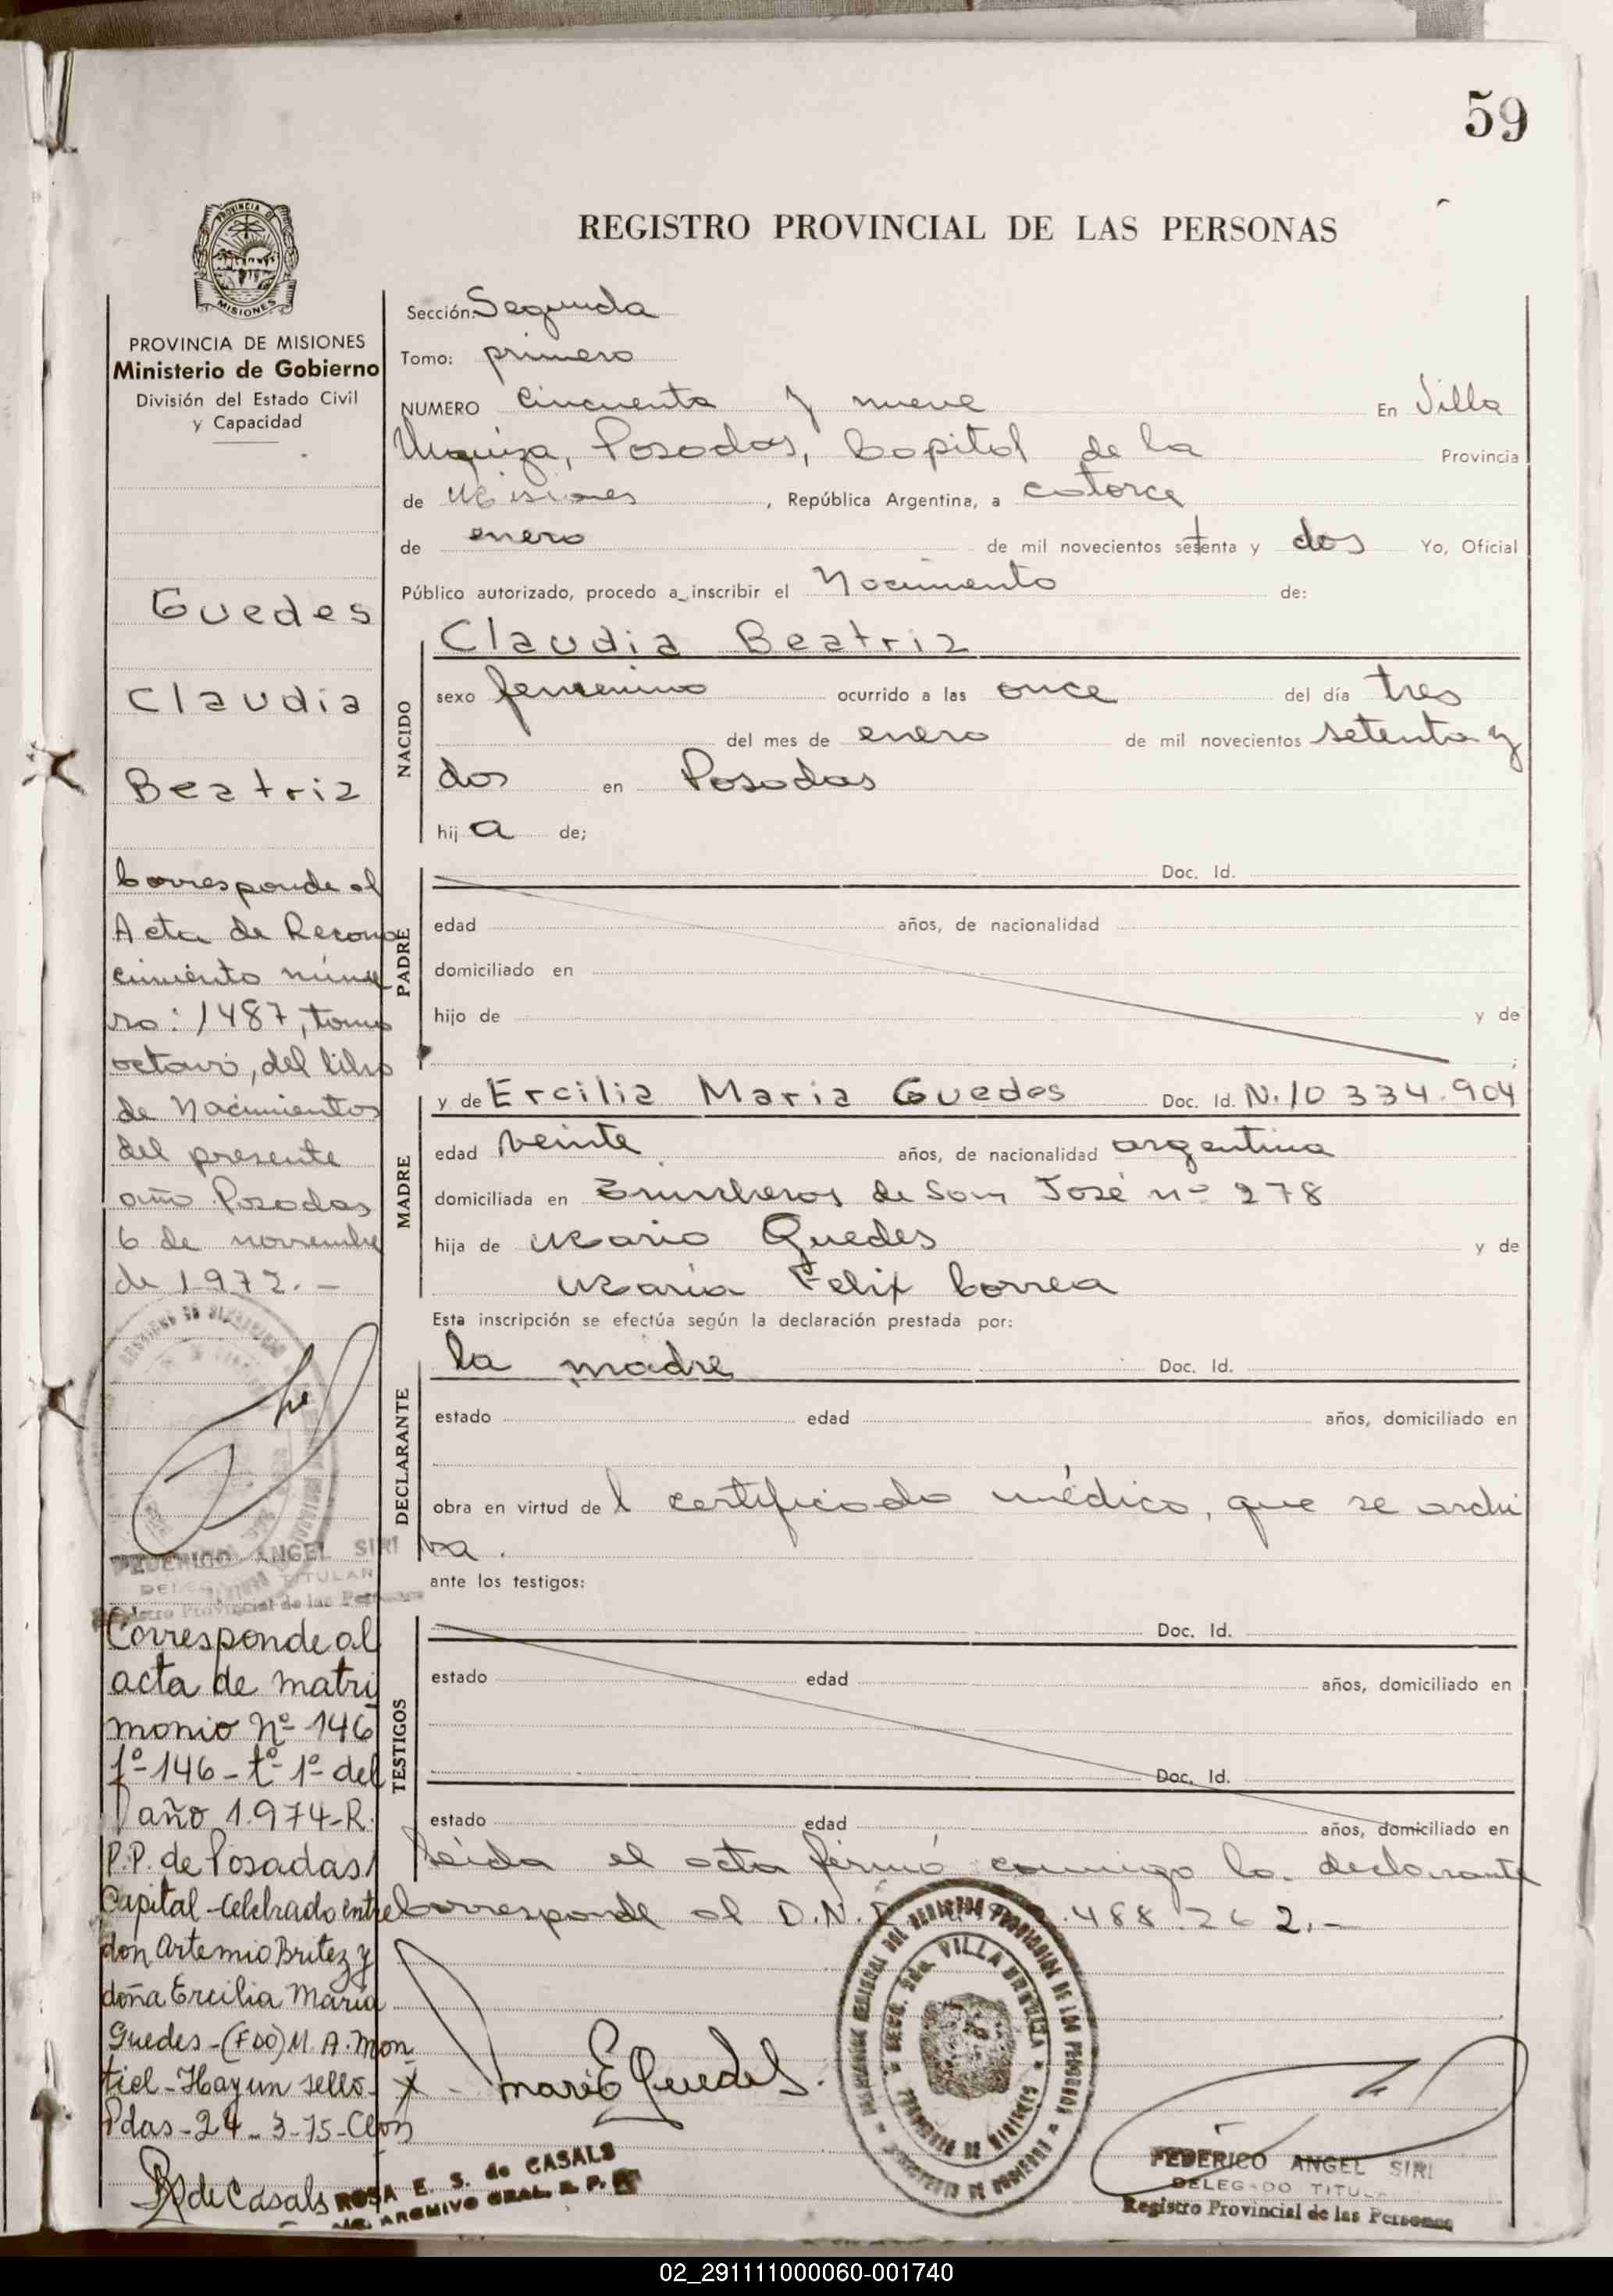 59
PROVINCIA DE
MISIONES
PROVINCIA DE MISIONES
Ministerio de Gobierno
División del Estado Civil
y Capacidad
Guedes
Claudia
Beatriz
Corresponde al
Acta de Recono
cimiento núme
ro: 1487, tomo
octavo, del libro
de Nacimientos
del presente
año. Posadas
6 de noviembre
de 1.972.-
FEDERICO ANGEL SIRI
TITULAR
Registro Provincial de las Personas
Corresponde al
acta de matri
monio Nº 146
fº-146-tº-1º del
año 1.974-R.
P.P. de Posadas,
Capital-Celebrado entre
don Artemio Britez y
doña Ercilia María
Guedes-(FDO) M. A. Mon
tiel-Hay un sello-
Pdas-24-3-75-
de Casals
ROSA E. S. de CASALS
ARCHIVO GRAL. R. P.
REGISTRO PROVINCIAL DE LAS PERSONAS
Sección: Segunda
Tomo: primero
NUMERO cincuenta y nueve En Villa
Urquiza, Posadas, Capital de la Provincia
de Misiones, República Argentina, a catorce
de enero de mil novecientos setenta y dos Yo, Oficial
Público autorizado, procedo a inscribir el Nacimiento de:
NACIDO
Claudia Beatriz
sexo femenino ocurrido a las once del día tres
del mes de enero de mil novecientos setenta y
dos en Posadas
hij a de;
PADRE
Doc. Id.
edad años, de nacionalidad
domiciliado en
hijo de y de
;
MADRE
y de Ercilia Maria Guedes Doc. Id. N. 10 334.904
edad veinte años, de nacionalidad argentina
domiciliada en Trincheros de San José nº 278
hija de Mario Guedes y de
María Felix Correa
Esta inscripción se efectúa según la declaración prestada por:
DECLARANTE
la madre Doc. Id.
estado edad años, domiciliado en
obra en virtud de l certificado médico, que se archi
va.
ante los testigos:
TESTIGOS
Doc. Id.
estado edad años, domiciliado en
Doc. Id.
estado edad años, domiciliado en
Leída el acta firmó conmigo la declarante
Corresponde al D.N.I. 488.262.-
x - Maria E Guedes.
VILLA URQUIZA
FEDERICO ANGEL SIRI
DELEGADO TITULAR
Registro Provincial de las Personas
02_291111000060-001740